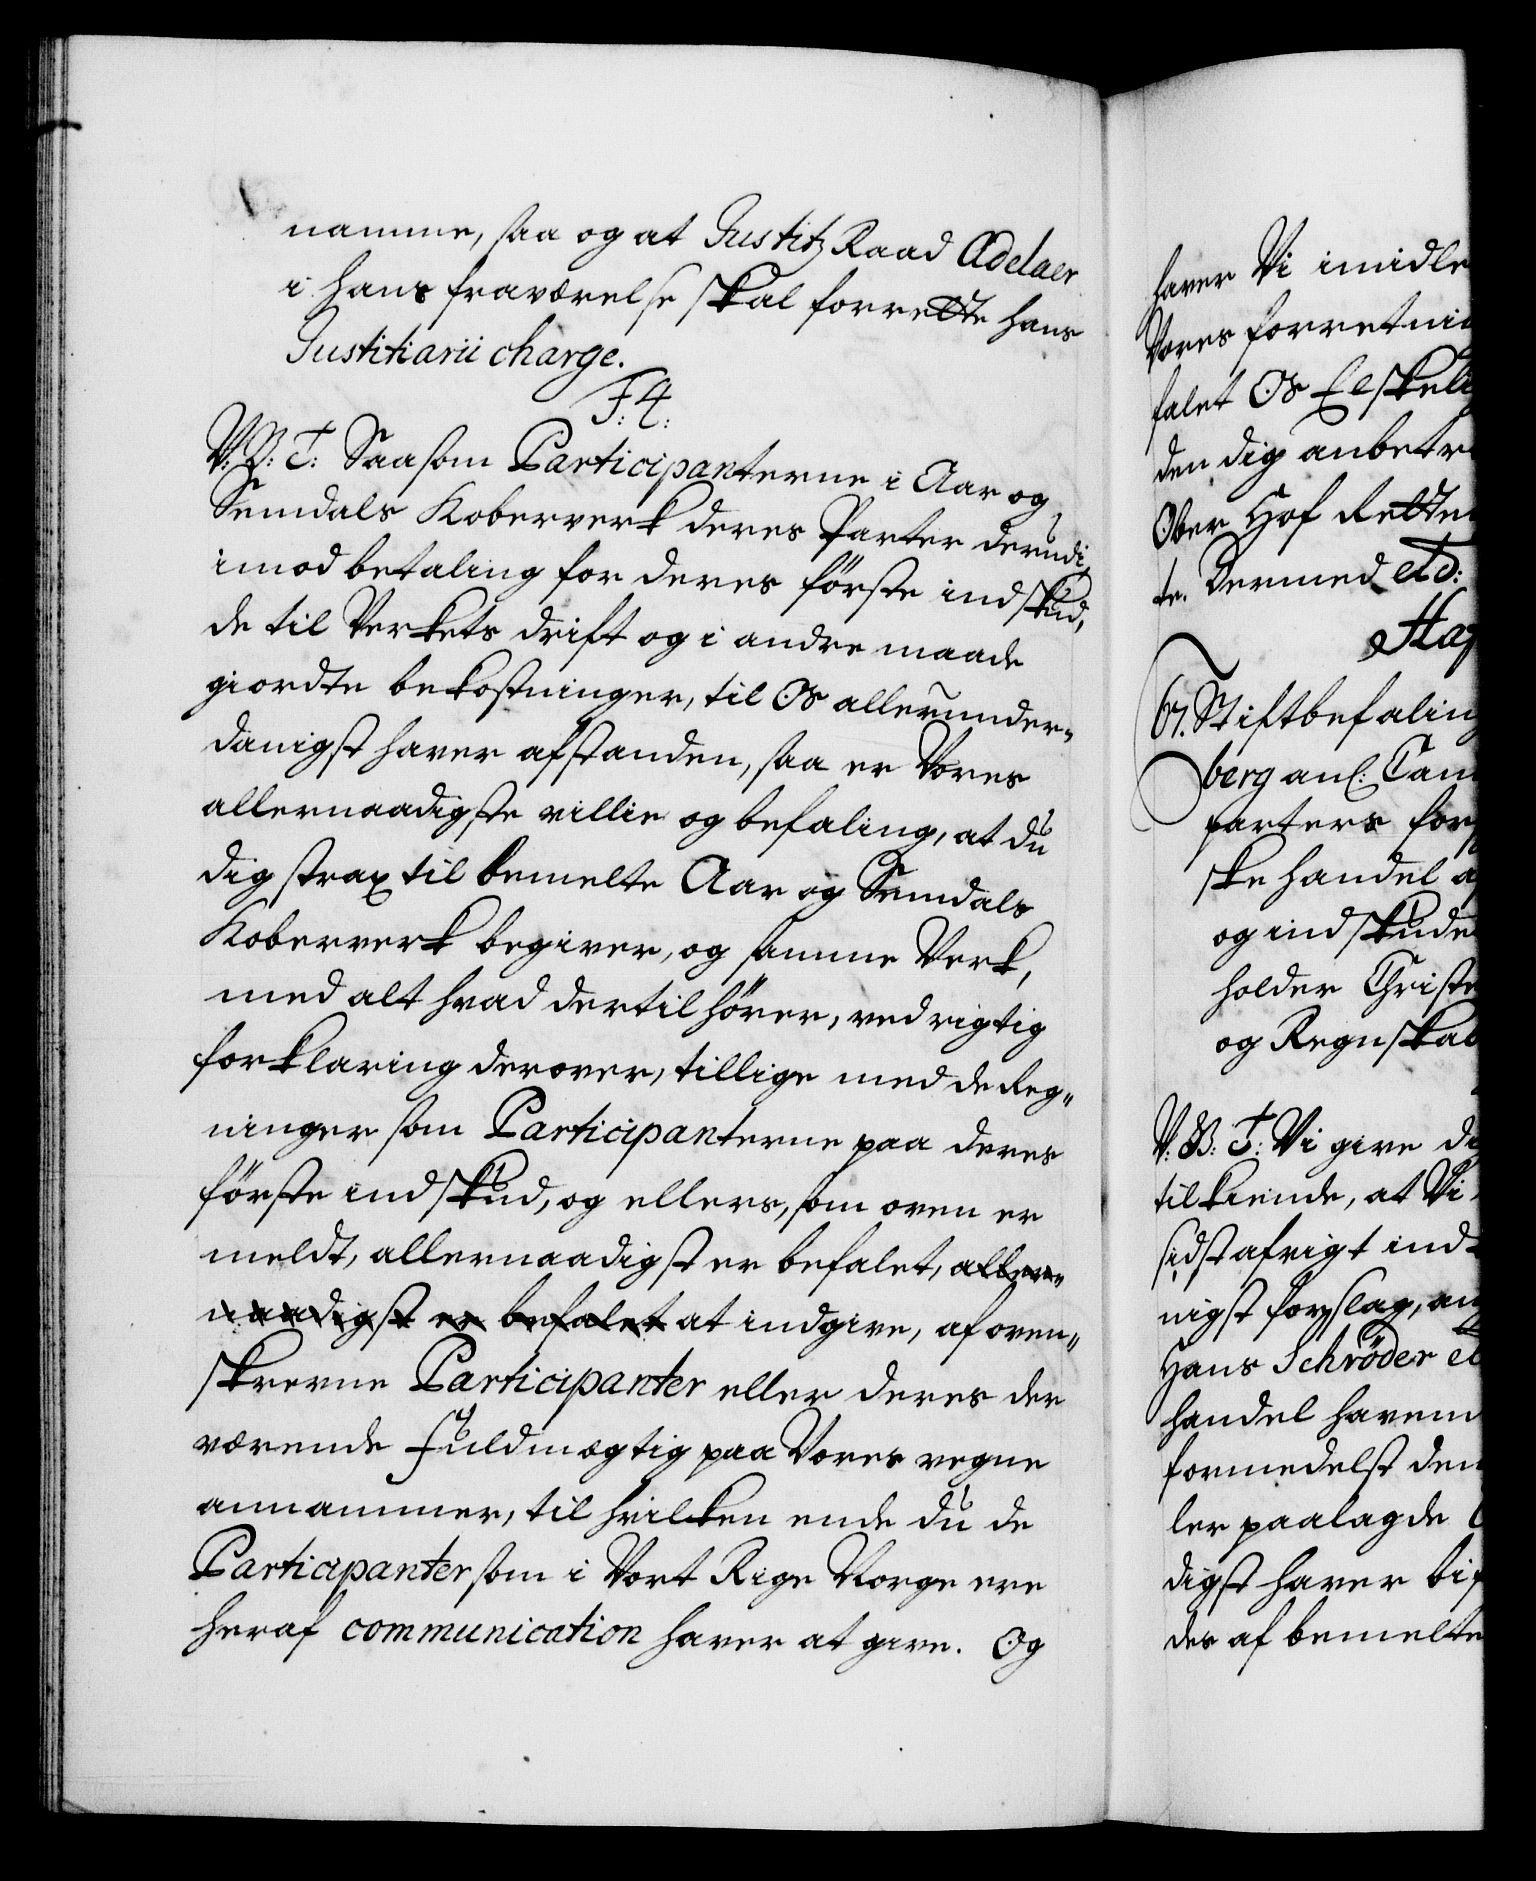 namme, saa og at Justitz Raad Adelaer
i hans fraværelse skal forrette hans
Justitiarii charge.
F: 4:
V: B: T: Saasom Participanterne i Aar og
Semdals Koberverk deres Parter derudi,
imod betaling for deres förste indskud,
de til Verkets drift og i andre maade
giordte bekostninger, til Os allerunder-
danigst haver afstanden, saa er Vores
allernaadigste villie og befaling, at du
dig strax til bemelte Aar og Semdals
Koberverk begiver, og samme Verk,
med alt hvad dertil hörer, ved rigtig
forklaring derover, tillige med de Reg-
ninger som Participanterne paa deres
förste indskud, og ellers, som oven er
meldt, allernaadigst er befalet, aller-
naadigst er befalet at indgive, af oven-
skrevne Participanter eller deres der
værende fuldmægtig paa Vores vegne
annammer, til hvilken ende du de
Participanter som i Vort Rige Norge ere
heraf communication haver at give. Og
haver Vi imidle
Vores forretnin
falet Os Elskeli
den dig anbetr
Ober Hof Rette
te. Dermed etc:
Haf
67. Stiftbefaling
berg anl: Tam
parters for
ske handel a
og indskude
holder Christe
og Regnskab
V: B: T: Vi give di
tilkiende, at Vi
sidst afvigt ind
nigst forslag, an
Hans Schröder et
handel havem
formedelst den
ler paalagde
digst haver bif
des af bemelte